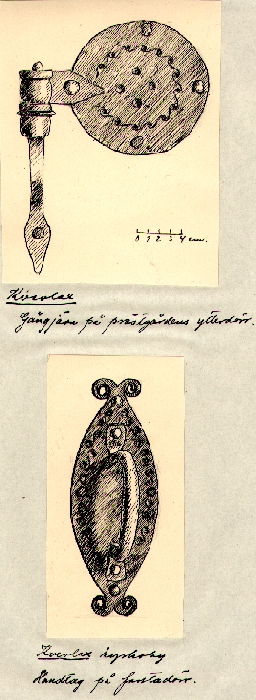 0 1 2 3 4 cm.
Kvevlax
Gångjärn på prästgårdens ytterdörr.
Kvevlax
Handtag på farstudörr.